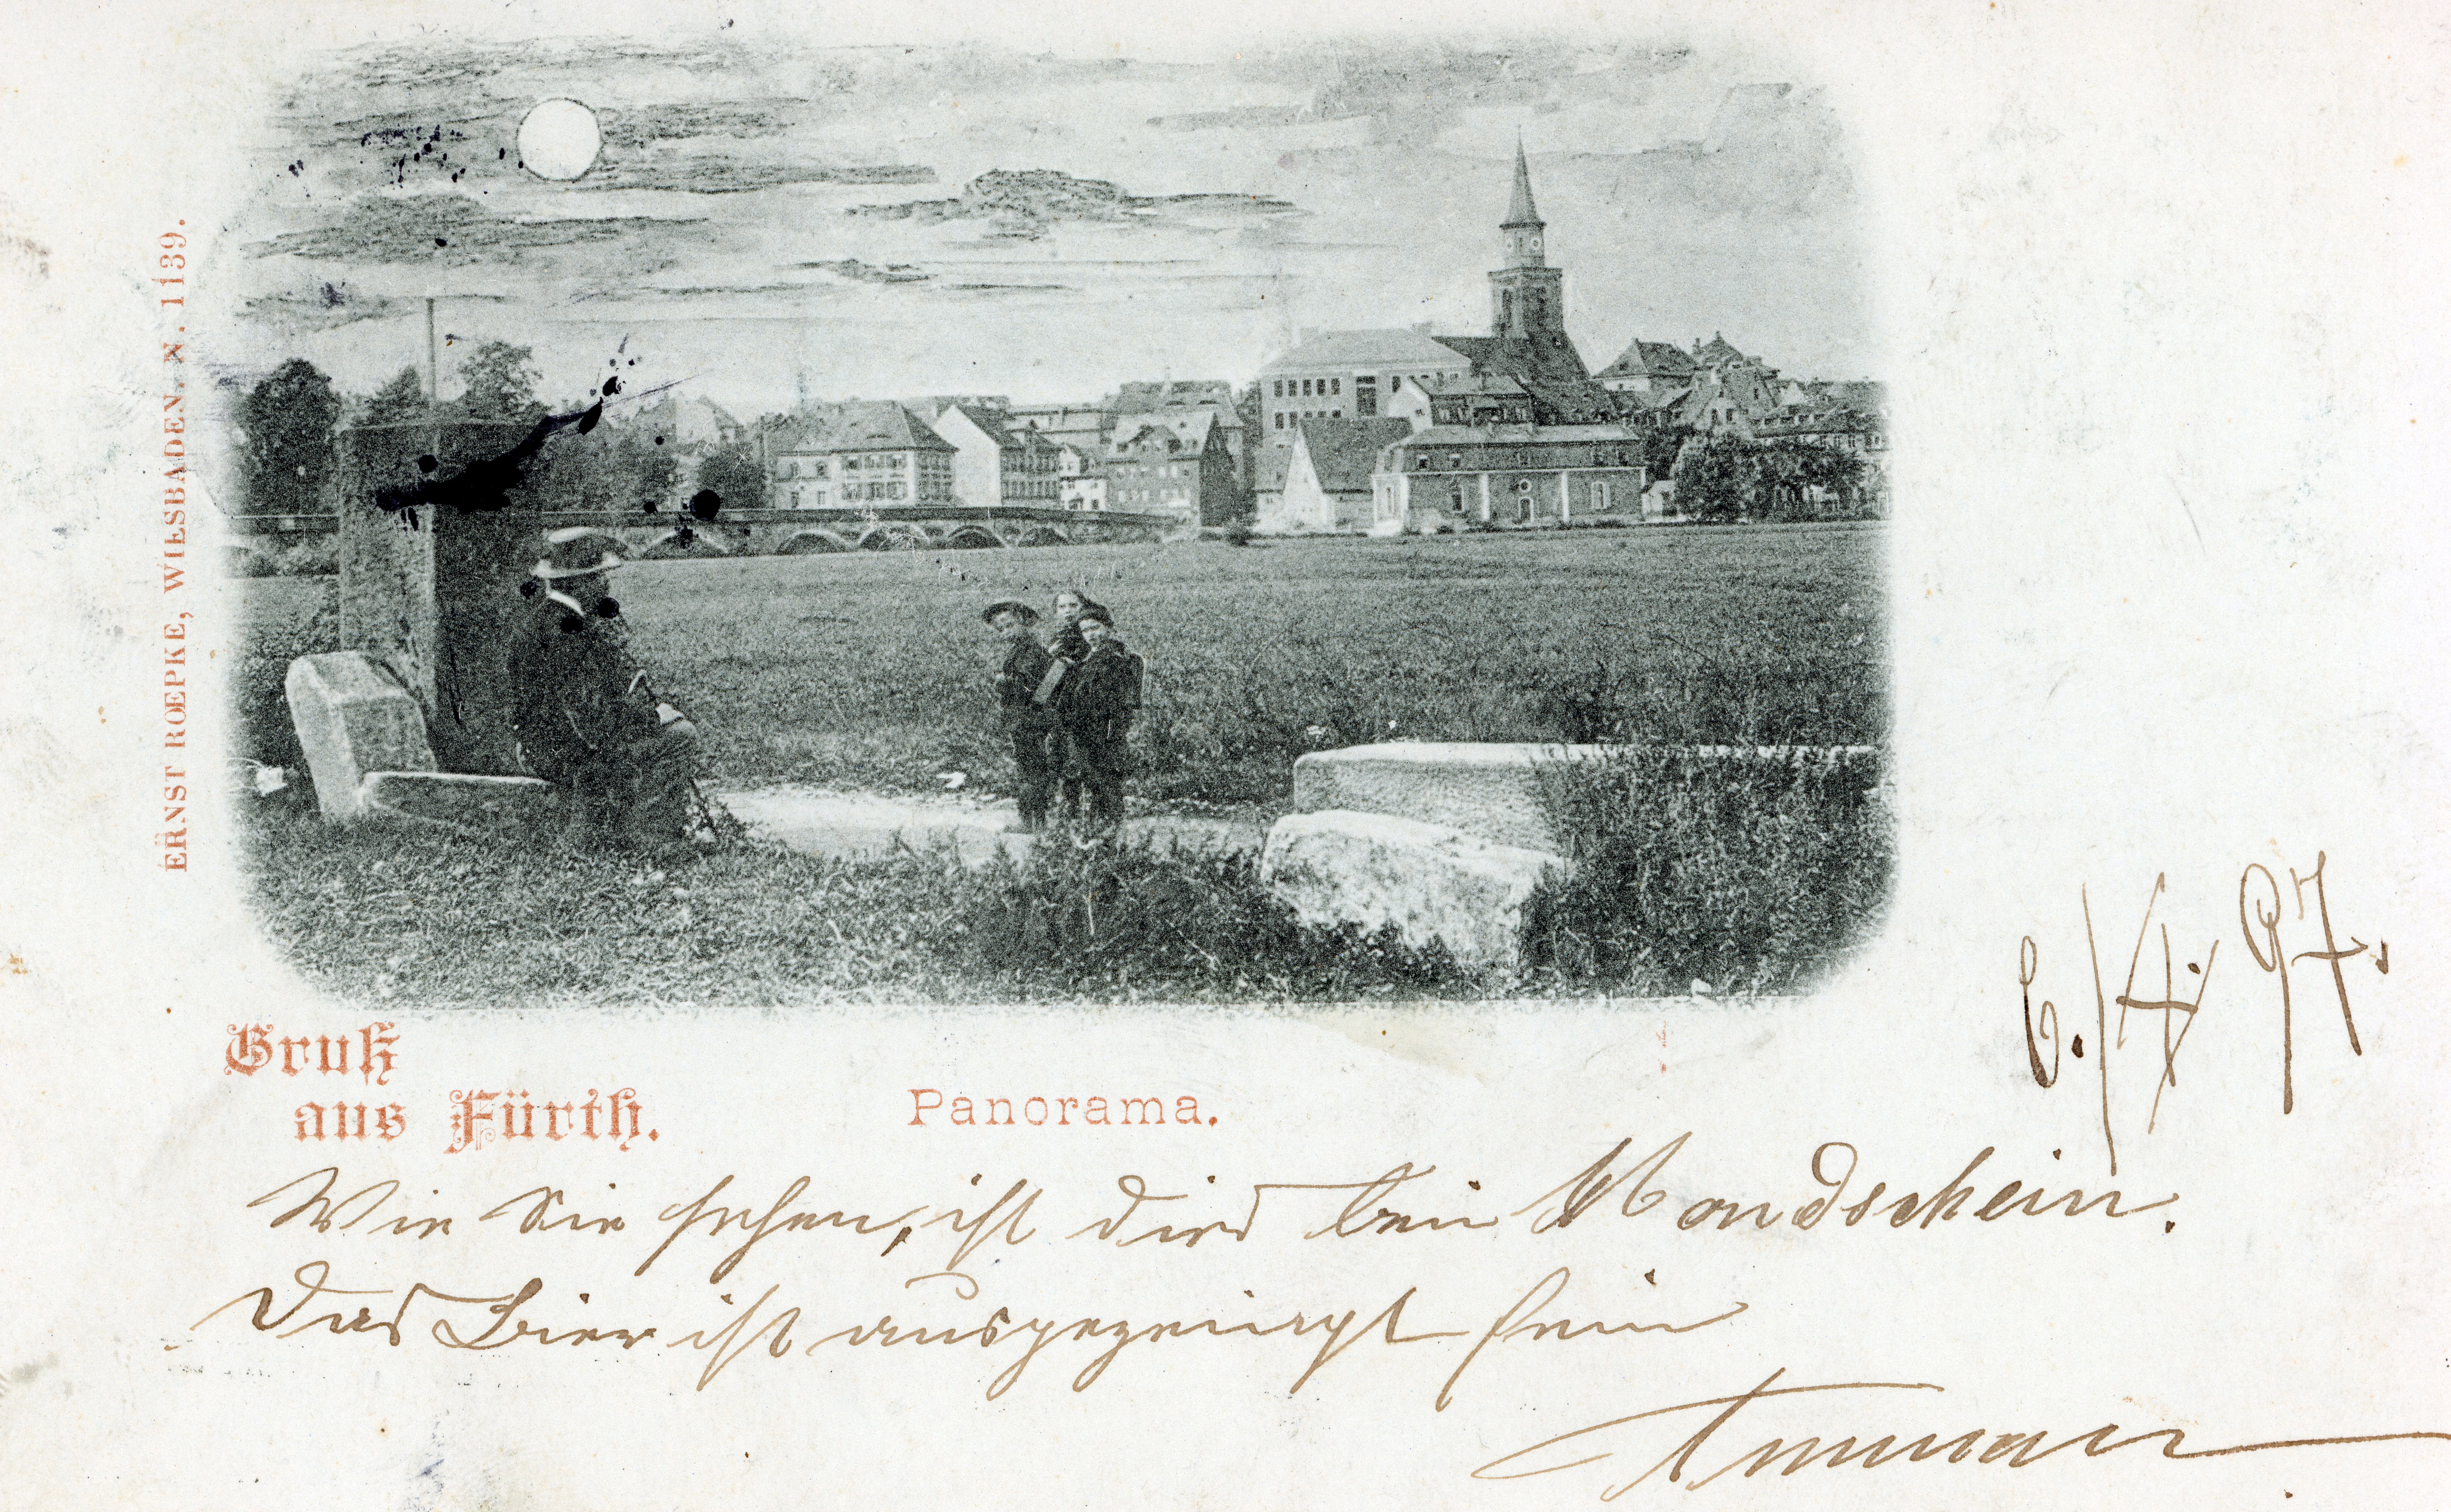 ERNST ROEPKE, WIESBADEN. N. 1139.
Gruß
aus Fürth.
Panorama.
6./4. 97.
Wie Sie sehen, ist dies kein Mondschein.
Das Bier ist ausgezeichnet fein